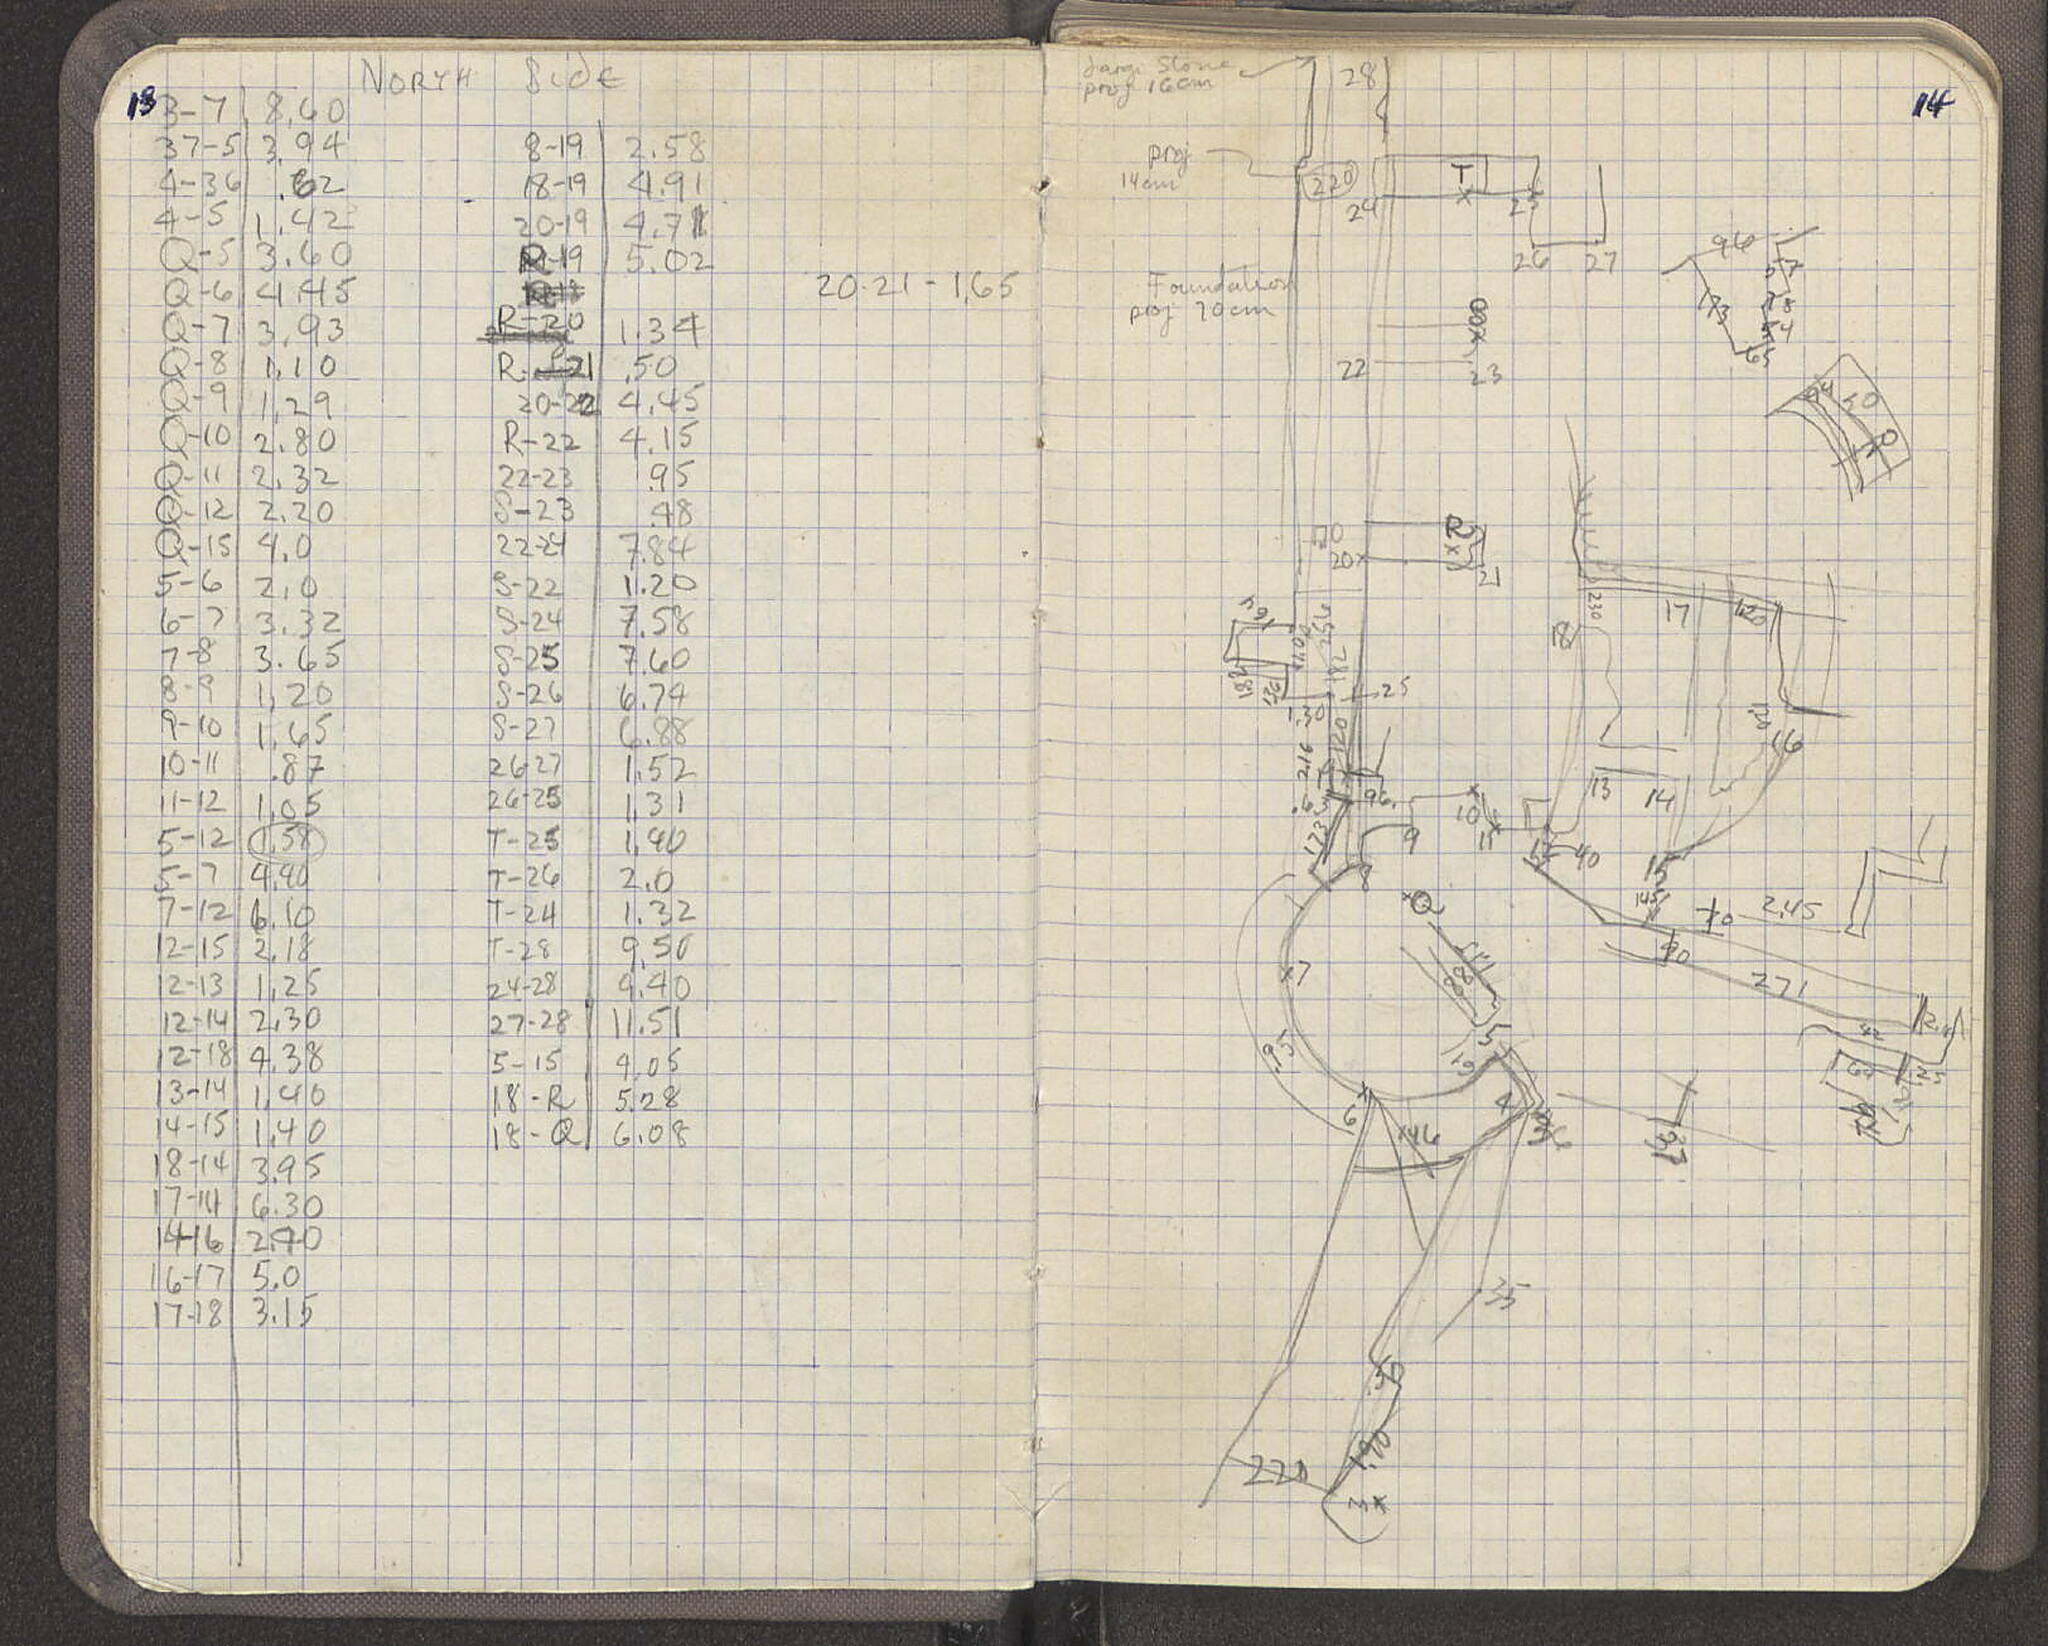 13
NORTH Side
3-7 8.60
37-5 3.94
4-36 .62
4-5 1.42
Q-5 3.60
Q-6 4.45
Q-7 3.93
Q-8 1.10
Q-9 1.29
Q-10 2.80
Q-11 2.32
Q-12 2.20
Q-15 4.0
5-6 2.0
6-7 3.32
7-8 3.65
8-9 1.20
9-10 1.65
10-11 .87
11-12 1.05
5-12 1.58
5-7 4.40
7-12 6.10
12-15 2.18
12-13 1.25
12-14 2.30
12-18 4.38
13-14 1.40
14-15 1.40
18-14 3.95
17-14 6.30
14-16 2.70
16-17 5.0
17-18 3.15
8-19 2.58
18-19 4.91
20-19 4.71
R-19 5.02
R-20 1.34
R-21 .50
20-22 4.45
R-22 4.15
22-23 .95
S-23 .48
22-24 7.84
S-22 1.20
S-24 7.58
S-25 7.60
S-26 6.74
S-27 6.88
26-27 1.52
26-25 1.31
T-25 1.40
T-26 2.0
T-24 1.32
T-28 9.50
24-28 9.40
27-28 11.51
5-15 4.05
18-R 5.28
18-Q 6.08
20-21-1.65
14
Large Stone
proj 16cm
28
proj
14cm
220
T
24
25
26
27
96
173
Foundation
proj 20cm
22
23
94
50
70
R
20
21
230
17
18
1.30
25
120
2.16
16
13
14
96
10
9
11
40
8
15
Q
2.45
90
7
271
5
4
6
46
37
35
220
1.90
3